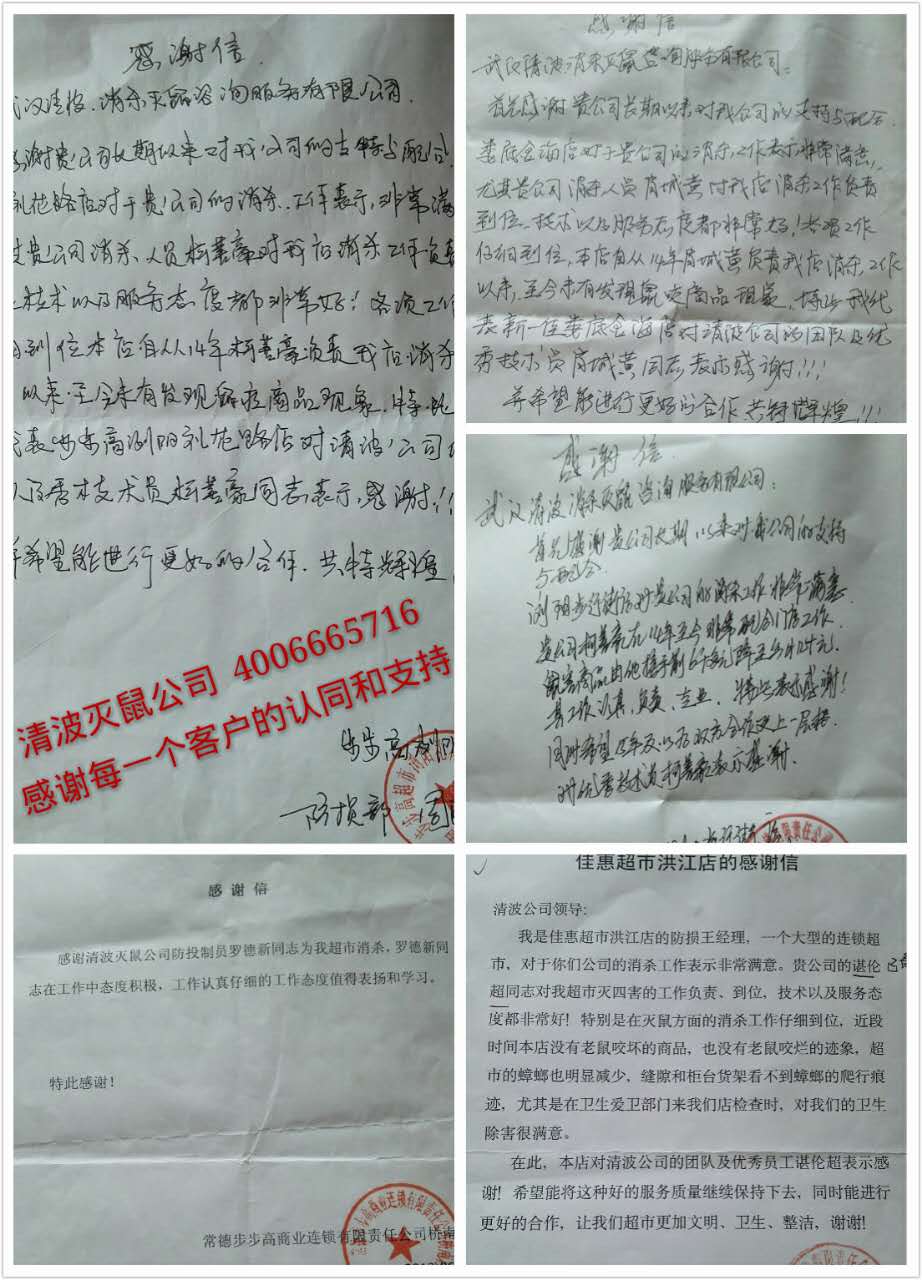 感谢信
武汉清波消杀灭鼠咨询服务有限公司
谢贵公司长期以来对我公司的支持与配合
礼花路店对于贵公司的消杀工作表示非常满
贵公司消杀人员柯善豪对我店消杀工作负责
技术以及服务态度都非常好!各项工作
到位本店自从14年柯善豪负责我店消杀
以来.至今未有发现鼠咬商品现象.特此
表步步高浏阳礼花路店对清波公司
优秀技术员柯善豪同志表示感谢!!
希望能进行更好的合作.共持辉煌
清波灭鼠公司 4006665716
感谢每一个客户的认同和支持
步步高浏阳
防损部 周
感谢信
武汉清波消杀灭鼠咨询服务有限公司:
首先感谢贵公司长期以来对我公司的支持与配合.
娄底金海店对于贵公司的消杀工作表示非常满意,
尤其贵公司消杀人员肖城黄对我店消杀工作负责
到位、技术以及服务态度都非常好!各项工作
仔细到位,本店自从14年肖城黄负责我店消杀工作
以来,至今未有发现鼠咬商品现象,特此我代
表新一佳娄底金海店对清波公司的团队及优
秀技术员肖城黄同志表示感谢!!!
并希望能进行更好的合作共持辉煌!!!
感谢信
武汉清波消杀灭鼠咨询服务有限公司:
首先感谢贵公司长期以来对我公司的支持
与配合.
浏阳步行街店对贵公司的消杀工作非常满意.
贵公司柯善豪在14年至今非常配合门店工作.
鼠害商品由他接手前
其工作认真,负责,专业. 特此表示感谢!
同时希望15年及以后双方合作更上一层楼.
对优秀技术员柯善豪表示感谢.
步行街店
感谢信
感谢清波灭鼠公司防投制员罗德新同志为我超市消杀,罗德新同
志在工作中态度积极,工作认真仔细的工作态度值得表扬和学习。
特此感谢!
常德步步高商业连锁有限责任公司桥南
佳惠超市洪江店的感谢信
清波公司领导:
我是佳惠超市洪江店的防损王经理,一个大型的连锁超
市,对于你们公司的消杀工作表示非常满意。贵公司的谌伦
超同志对我超市灭四害的工作负责、到位,技术以及服务态
度都非常好!特别是在灭鼠方面的消杀工作仔细到位,近段
时间本店没有老鼠咬坏的商品,也没有老鼠咬烂的迹象,超
市的蟑螂也明显减少,缝隙和柜台货架看不到蟑螂的爬行痕
迹,尤其是在卫生爱卫部门来我们店检查时,对我们的卫生
除害很满意。
在此,本店对清波公司的团队及优秀员工谌伦超表示感
谢!希望能将这种好的服务质量继续保持下去,同时能进行
更好的合作,让我们超市更加文明、卫生、整洁,谢谢!